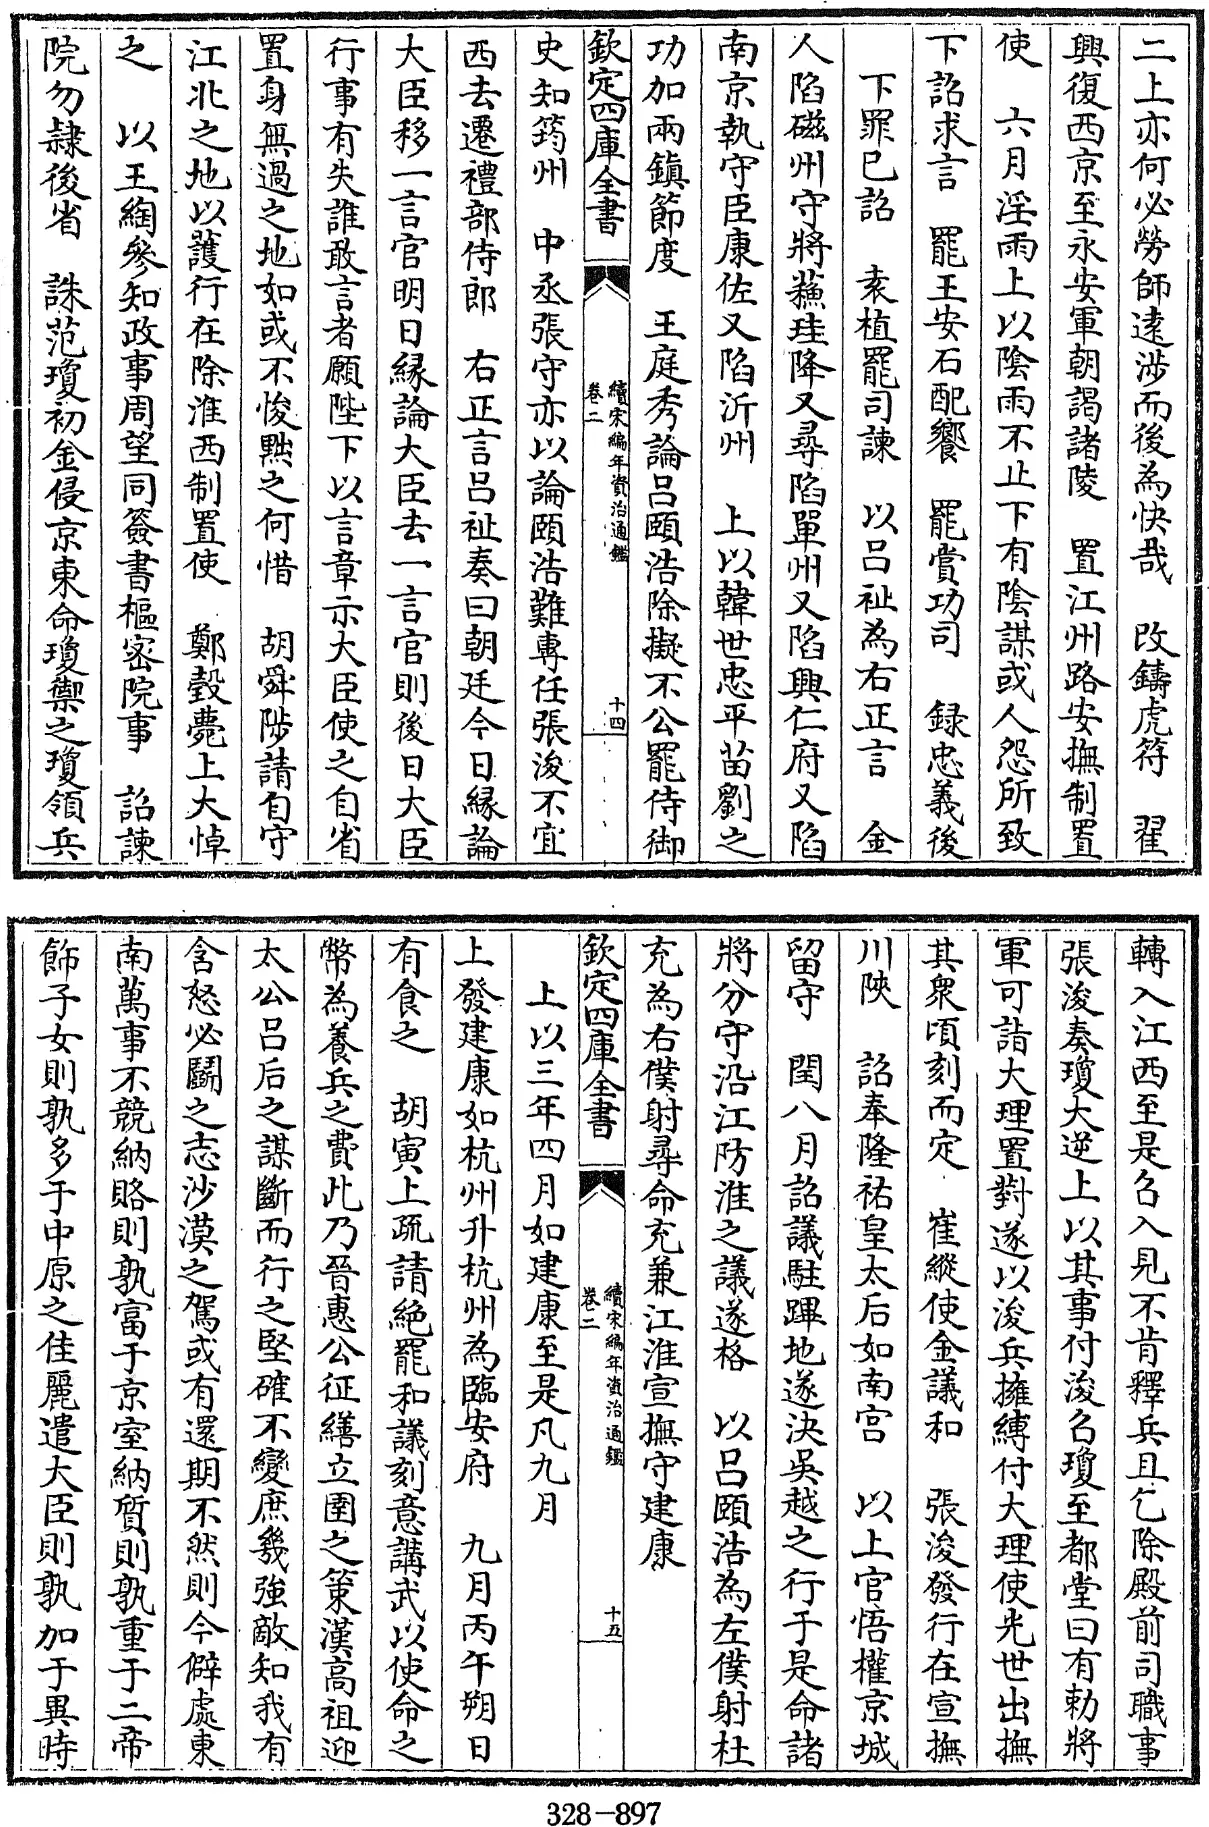 二上亦何必勞師遠涉而後為快哉　改鑄虎符　翟
興復西京至永安軍朝謁諸陵　置江州路安撫制置
使　六月淫雨上以陰雨不止下有陰謀或人怨所致
下詔求言　罷王安石配饗　罷賞功司　録忠義後
下罪已詔　袁植罷司諫　以吕祉為右正言　金
人陷磁州守將蘓珪降又尋陷單州又陷興仁府又陷
南京執守臣康佐又陷沂州　上以韓世忠平苖劉之
功加兩鎮節度　王庭秀論吕頤浩除擬不公罷侍御
欽定四庫全書
續宋編年資治通鑑
卷二
十四
史知筠州　中丞張守亦以論頤浩難專任張浚不宜
西去遷禮部侍郎　右正言吕祉奏曰朝廷今日縁論
大臣移一言官明日縁論大臣去一言官則後日大臣
行事有失誰敢言者願陛下以言章示大臣使之自省
置身無過之地如或不悛黜之何惜　胡舜陟請自守
江北之地以䕶行在除淮西制置使　鄭瑴薨上大悼
之　以王綯參知政事周望同簽書樞密院事　詔諫
院勿隷後省　誅范瓊初金侵京東命瓊禦之瓊領兵
轉入江西至是召入見不肯釋兵且乞除殿前司職事
張浚奏瓊大逆上以其事付浚召瓊至都堂曰有勅將
軍可詣大理置對遂以浚兵擁縛付大理使光世出撫
其衆頃刻而定　崔縱使金議和　張浚發行在宣撫
川陜　詔奉隆祐皇太后如南宫　以上官悟權京城
留守　閏八月詔議駐蹕地遂決吳越之行于是命諸
將分守沿江防淮之議遂格　以吕頤浩為左僕射杜
充為右僕射尋命充兼江淮宣撫守建康
欽定四庫全書
續宋編年資治通鑑
卷二
十五
上以三年四月如建康至是凡九月
上發建康如杭州升杭州為臨安府　九月丙午朔日
有食之　胡寅上疏請絶罷和議刻意講武以使命之
幣為養兵之費此乃晉惠公征繕立圉之策漢高祖迎
太公吕后之謀斷而行之堅確不變庶幾強敵知我有
含怒必鬭之志沙漠之駕或有還期不然則今僻處東
南萬事不競納賂則孰富于京室納質則孰重于二帝
飾子女則孰多于中原之佳麗遣大臣則孰加于異時
328-897